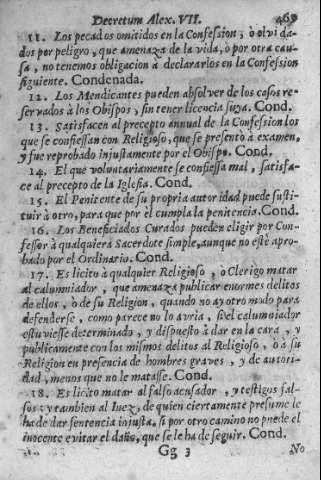 Decretum Alex. VII. 469
11. Los pecados omitidos en la Confession, ò olvida-
dos por peligro, que amenaza de la vida, ò por otra cau-
sa, no tenemos obligacion à declararlos en la Confession
siguiente. Condenada.
12. Los Mendicantes pueden absolver de los casos re-
servados à los Obispos, sin tener licencia suya. Cond.
13. Satisfacen al precepto annual de la Confession los
que se confiessan con Religioso, que se presentò à examen,
y fue reprobado injustamente por el Obispo. Cond.
14. El que voluntariamente se confiessa mal, satisfa-
ce al precepto de la Iglesia. Cond.
15. El Penitente de su propria autoridad puede susti-
tuir à otro, para que por el cumpla la penitencia. Cond.
16. Los Beneficiados Curados pueden eligir por Con-
fessor à qualquiera Sacerdote simple, aunque no estè apro-
bado por el Ordinario. Cond.
17. Es licito à qualquier Religioso, o Clerigo matar
al calumniador, que amenaza publicar enormes delitos
de ellos, ò de su Religion, quando no ay otro modo para
defenderse, como parece no lo avria, si el calumniador
estuviesse determinado, y dispuesto à dar en la cara, y
publicamente con los mismos delitos al Religioso, ò à su
Religion en presencia de hombres graves, y de autori-
dad, menos que no le matasse. Cond.
18. Es licito matar al falso acusador, y testigos fal-
sos; y tambien al Iuez, de quien ciertamente presume le
ha de dar sentencia injusta, si por otro camino no puede el
inocente evitar el daño, que se le ha de seguir. Cond.
Gg 3 No